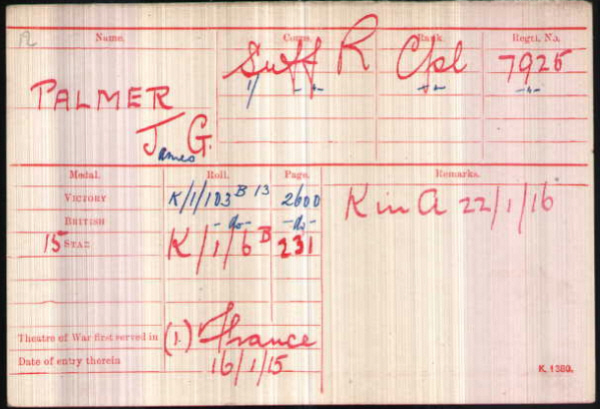 R Name. Corps. Rank. Regtl. No.
Suff R Cpl 7925
PALMER 1/ -"- -"- -"-
James G.
Medal. Roll. Page. Remarks.
VICTORY K/1/103 B 13 2600 K in A 22/1/16
BRITISH -do- -do-
15 STAR K/1/6 B 231
Theatre of War first served in (1). France
Date of entry therein 16/1/15
K. 1380.